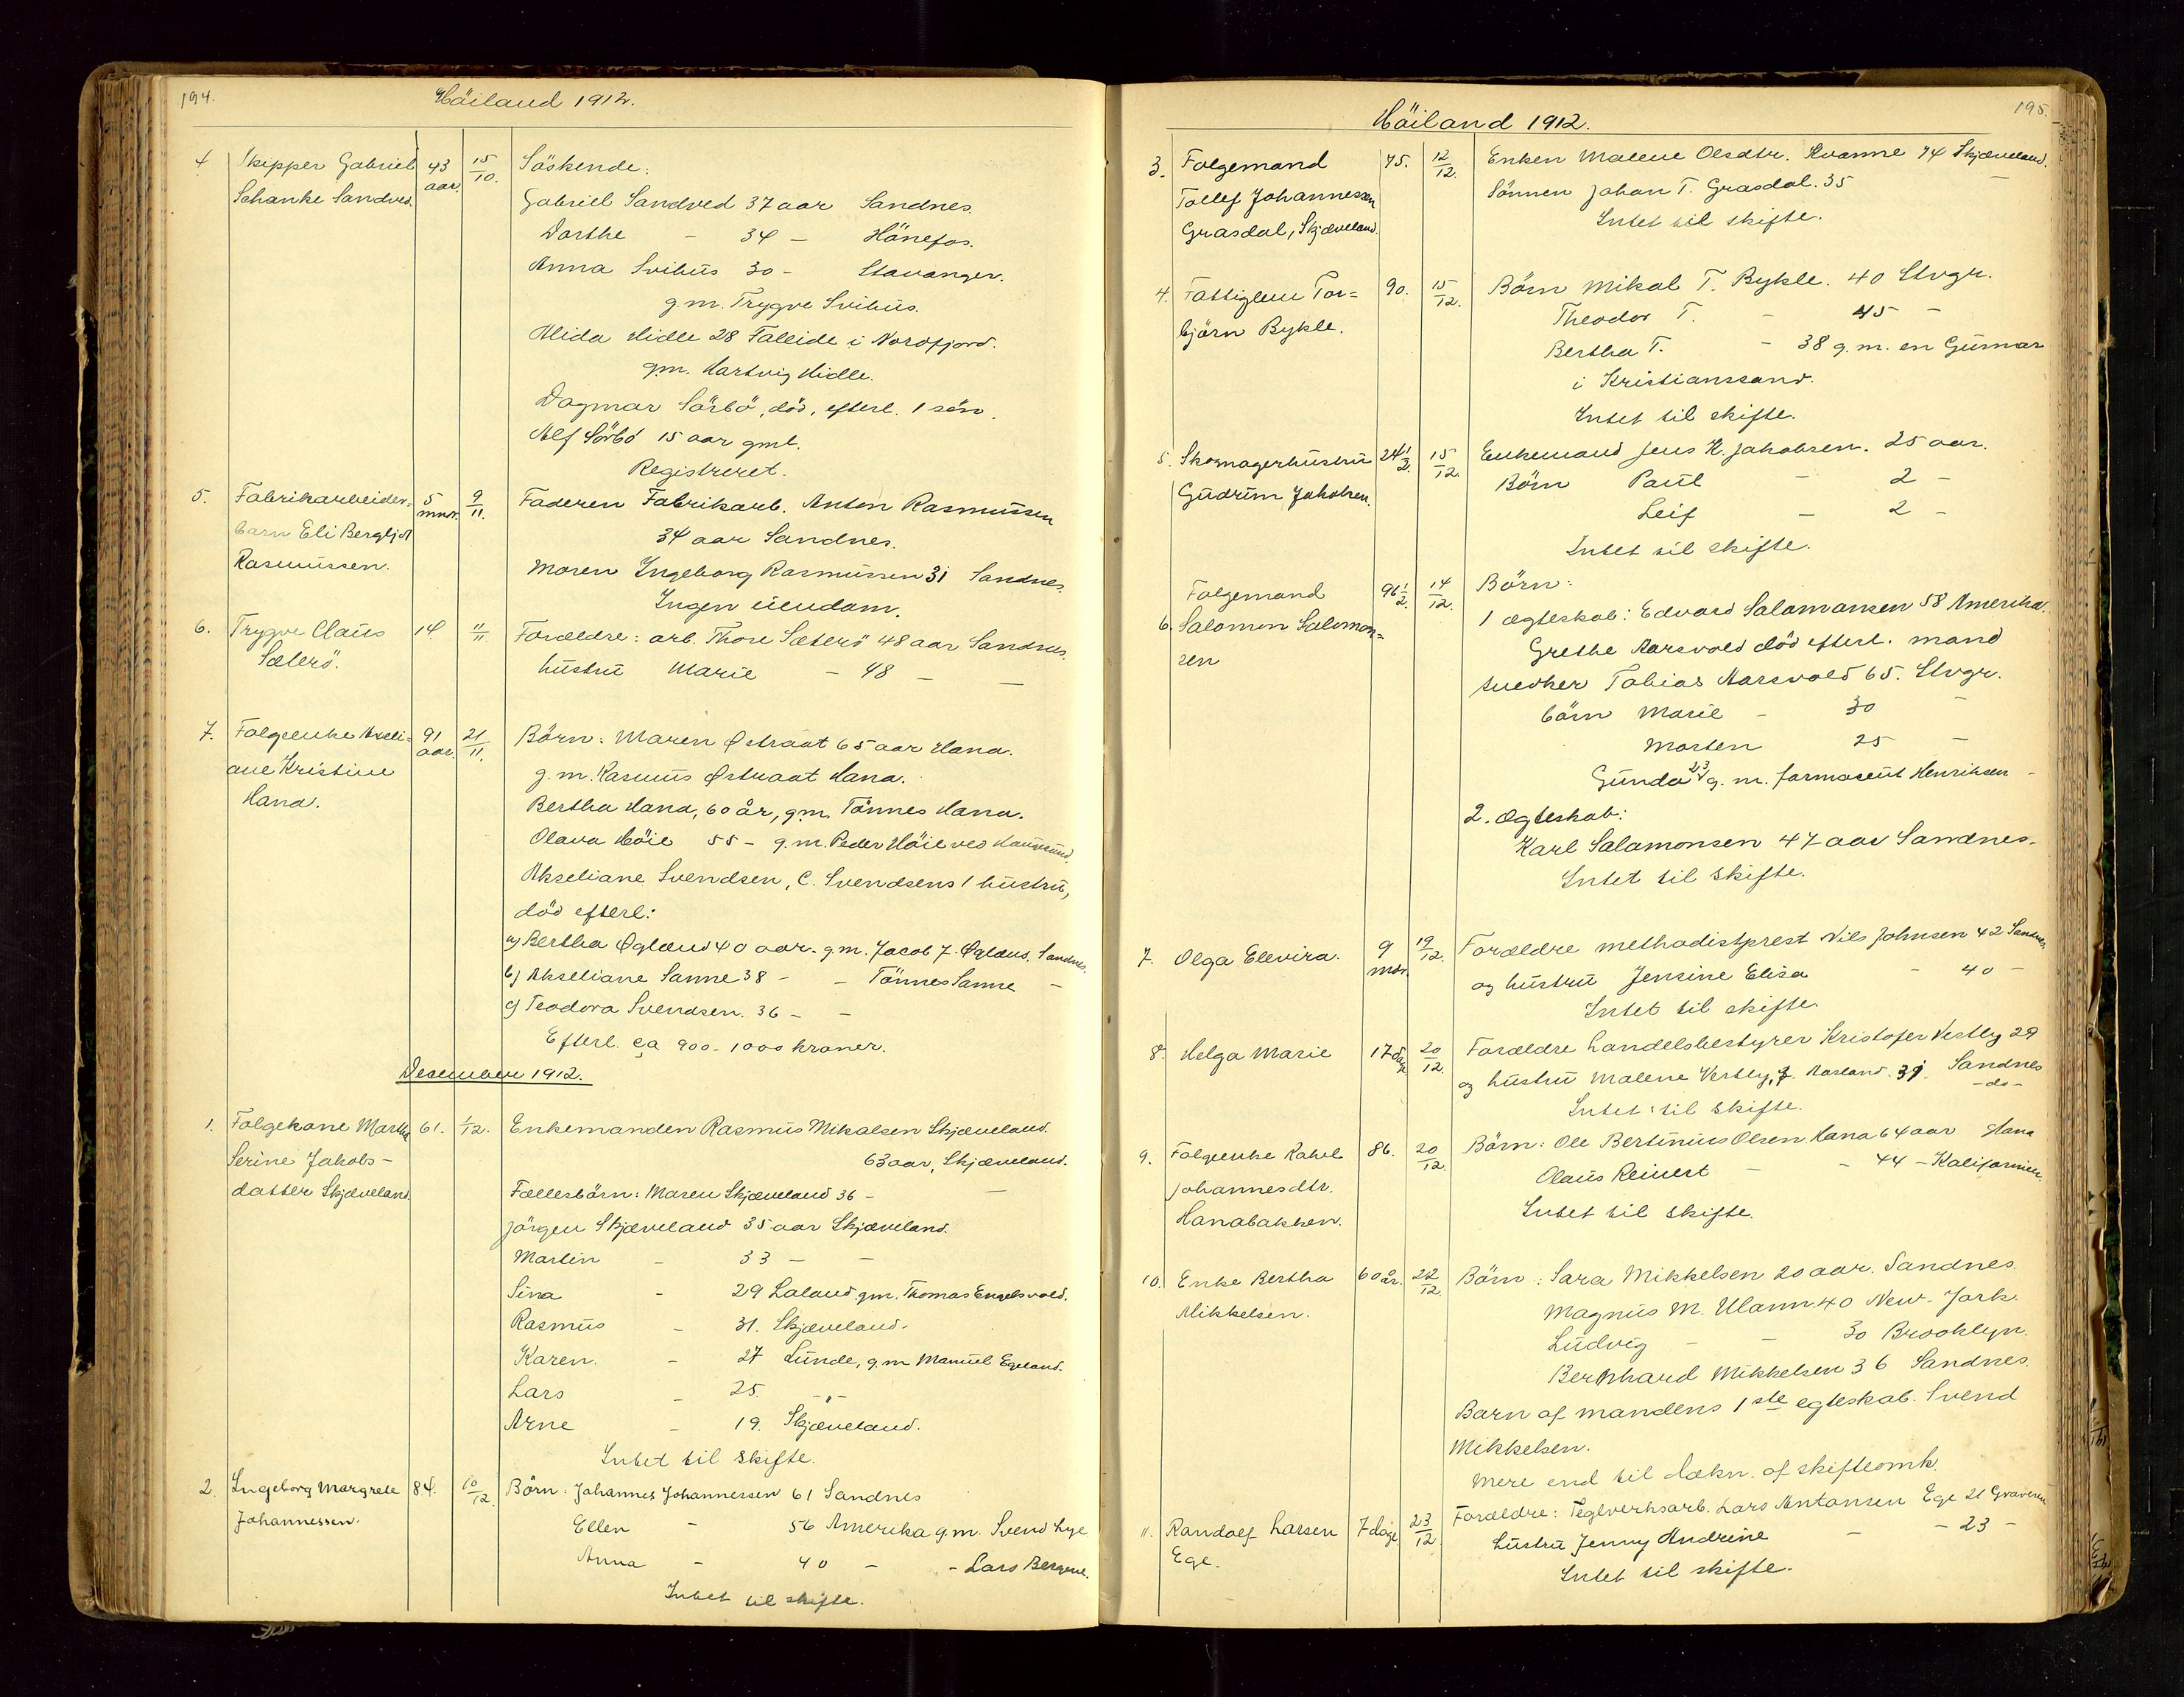 194.
Höiland 1912.
4 Skipper Gabriel 43 15/10. Söskende:
Schanke Sandved. aar.
Gabriel Sandved 37 aar Sandnes.
Dorthe - 34 - Hönefos.
Anna Svihus 30 - Stavanger.
g.m. Trygve Svihus.
Alida Hidle 28 Faleide i Nordfjord.
gm. Hartvig Hidle.
Dagmar Sörbö, död, efterl. 1 sön.
Alf Sörbö 15 aar gml.
Registreret.
5. Fabrikarbeider- 5 9/11. Faderen Fabrikarb. Anton Rasmussen
barn Eli Bergljot mndr. 34 aar Sandnes.
Rasmussen. Moren Ingeborg Rasmussen 31 Sandnes.
Ingen eiendom.
6. Trygve Claus 14 11/11. Forældre: arb. Thore Sæterö 48 aar Sandnes.
Sæterö. hustru Marie - 48 - -
7. Folgeenke Axeli- 91 21/11. Börn: Maren Østraat 65 aar Hana.
ane Kristine aar. g.m. Rasmus Østraat Hana.
Hana. Bertha Hana, 60 år, gm. Tönnes Hana.
Olava Höie 55 - g.m. Peder Höie ved Haugesund.
Akseliane Svendsen, C. Svendsens 1 hustru,
död efterl:
a) Bertha Øglænd 40 aar. g.m. Jacob J. Øglænd. Sandnes.
b) Akseliane Sanne 38 - - Tönnes Sanne -
c) Teodora Svendsen. 36 - -
Efterl. ca 900 - 1000 kroner.
Desember 1912.
1. Folgekone Martha 61. 1/12. Enkemanden Rasmus Mikalsen Skjæveland.
Serine Jakobs- 63 aar, Skjæveland.
datter Skjæveland. Fællesbörn: Maren Skjæveland 36 - -
Jörgen Skjæveland 35 aar Skjæveland.
Martin - 33 - -
Sina - 29 Laland. gm. Thomas Engelsvold.
Rasmus - 31. Skjæveland.
Karen. - 27 Lunde, g.m Manuel Egeland.
Lars - 25. - " -
Arne - 19. Skjæveland.
Intet til skifte.
2. Ingeborg Margrete 84. 10/12. Börn: Johannes Johannessen 61 Sandnes
Johannessen. Ellen - 56 Amerika g.m. Svend Lye
Anna - 40 - - Lars Bergene.
Intet til skifte.
195.
Höiland 1912.
3. Folgemand 75. 12/12. Enken Malene Olsdtr. Kvamme 74 Skjæveland.
Tollef Johannessen Sönnen Johan T. Grasdal. 35 -
Grasdal, Skjæveland. Intet til skifte.
4. Fattiglem Tor= 90. 15/12. Börn Mikal T. Bykle. 40 Stvgr.
björn Bykle. Theodor T. - 45 -
Bertha T. - 38 g.m. en Gumar
i Kristianssand.
Intet til skifte.
5. Skomagerhustru 24 1/2. 15/12. Enkemand Jens K. Jakobsen. 25 aar.
Gudrun Jakobsen. Börn Paul - 2 -
Leif - 2 -
Intet til skifte.
Folgemand 96 1/2. 14/12. Börn:
6. Salomon Salomon= 1 ægteskab: Edvard Salomonsen 58 Amerika.
sen Grethe Aarsvold död efterl. mand
snedker Tobias Aarsvold 65. Stvgr.
börn Marie - 30 -
Morten 25 -
Gunda 23 g.m. farmaseut Henriksen -
2. ægteskab:
Karl Salamonsen 47 aar Sandnes.
Intet til skifte.
7. Olga Elevira. 9 19/12. Forældre methodistprest Nils Johnsen 42 Sandnes.
mdr. og hustru Jensine Elisa - 40 -
Intet til skifte.
8. Helga Marie 17 dage 20/12. Forældre handelsbestyrer Kristofer Vestly 29
og hustru Malene Vestly, f. Aasland. 31. Sandnes
-do-
Intet til skifte.
9. Folgeenke Rakel 86. 20/12. Börn: Ole Bertinius Olsen Hana 64 aar Hana
Johannesdtr. Olaus Reinert - - 44 - Kalifornien.
Hanabakken. Intet til skifte.
10. Enke Bertha 60 år. 22/12. Börn: Sara Mikkelsen 20 aar. Sandnes.
Mikkelsen. Magnus M. Ulann. 40 New-Jork.
Ludvig - - 30 Brooklyn.
Bernhard Mikkelsen 36 Sandnes.
Barn af mandens 1ste egteskab. Svend
Mikkelsen.
Mere end til dækn. af skifteomk.
11. Randolf Larsen 7 dage 23/12. Forældre: Teglverksarb. Lars Antonsen Ege 21 Graveren
Ege. hustru Jenny Andrine - - 23 -
Intet til skifte.